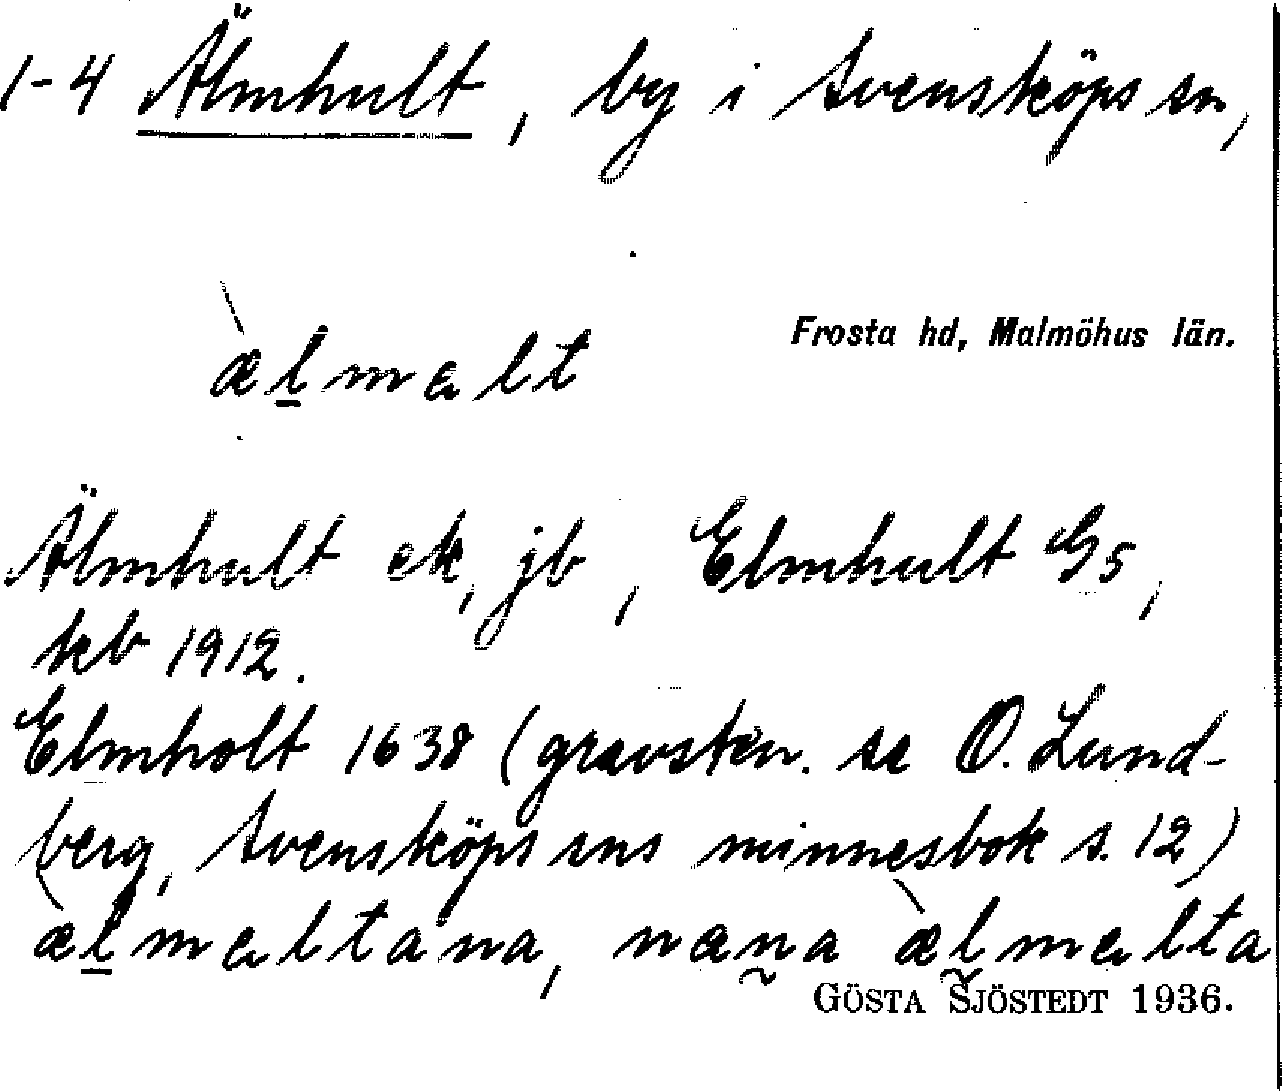 1-4 Älmhult, by i Svensköps sn,
Frosta hd, Malmöhus län.
æ̀l̠mɐlt
Älmhult ek, jb, Elmhult GS,
kb 1912.
Elmholt 1638 (gravsten. se O. Lund-
berg, Svensköps sns minnesbok s. 12)
æ̀l̠mɐltana, næn̰a æ̀l̰mɐlta
GÖSTA SJÖSTEDT 1936.